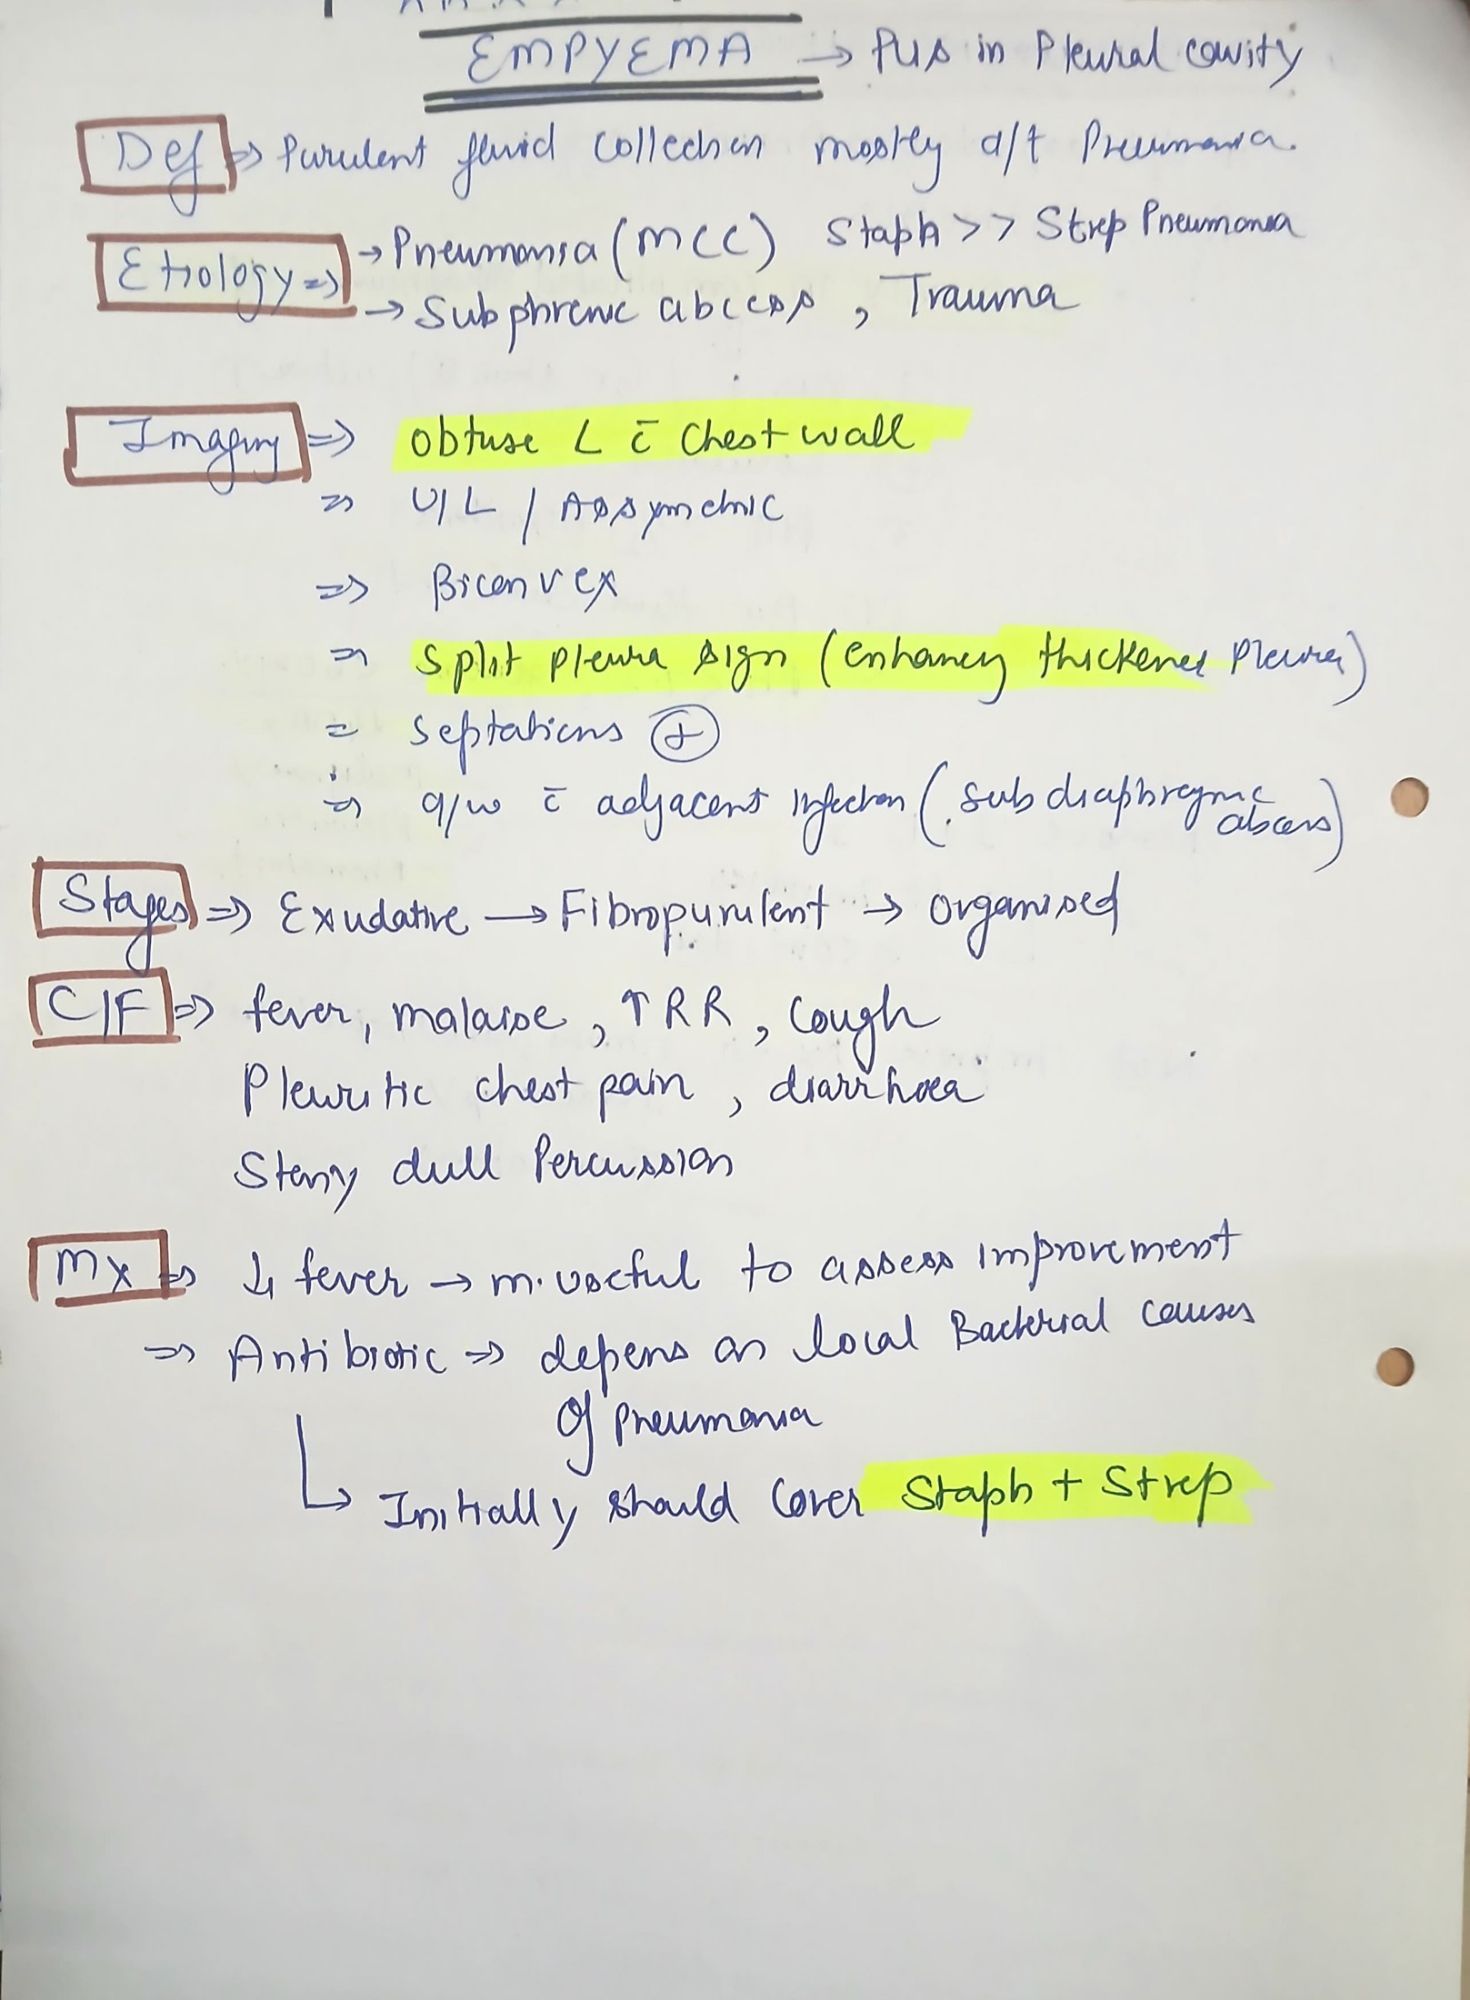 EMPYEMA → Pus in Pleural cavity
Def ⇒ Purulent fluid collection mostly d/t Pneumonia.
Etiology ⇒ → Pneumonia (MCC) Staph >> Strep Pneumonia
→ Subphrenic abccess , Trauma
Imaging ⇒ obtuse ∠ c̄ Chest wall
⇒ U/L / Assymetric
⇒ Biconvex
⇒ Split pleura sign (enhancing thickened pleura)
= Septations ⊕
⇒ a/w c̄ adjacent infection (subdiaphragmic abcess)
Stages ⇒ Exudative → Fibropurulent → organised
C/F ⇒ fever, malaise, ↑RR, cough
Pleuritic chest pain, diarrhoea
Stony dull Percussion
Mx ⇒ ↓ fever → m.useful to assess improvement
⇒ Antibiotic ⇒ depens on local Bacterial causes
of pneumonia
↳ Initially should cover Staph + Strep